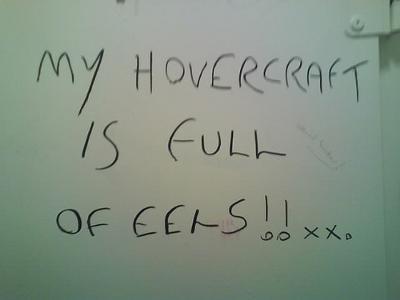 MY HOVERCRAFT
IS FULL
OF EELS!! xx.